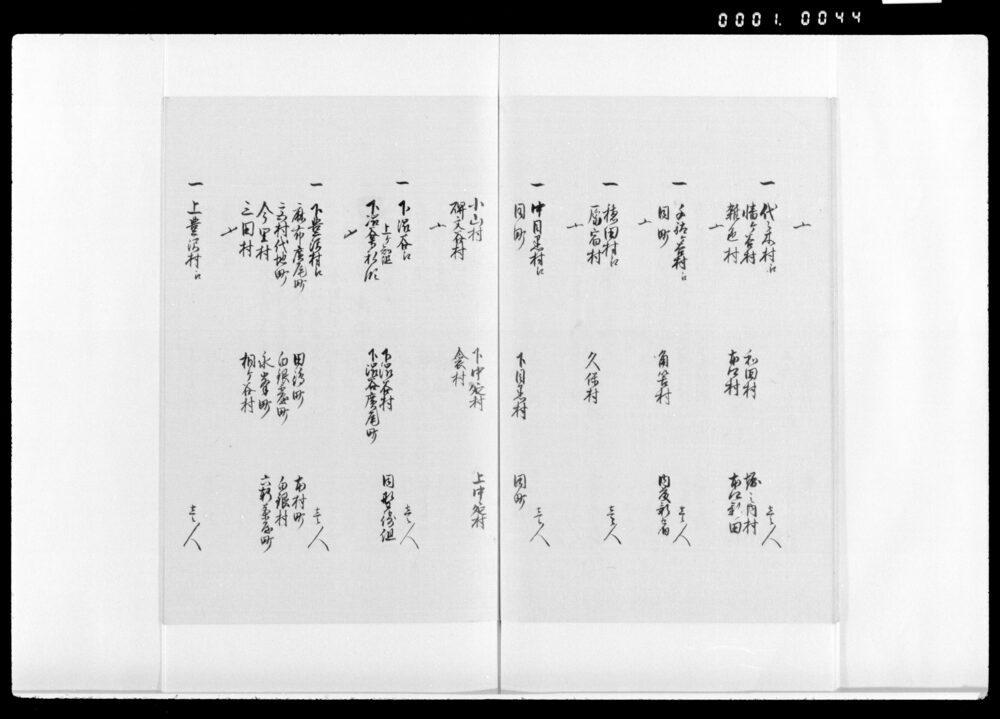 0001.0044
一 代々木村ゟ
幡ヶ谷村 和田村 堀之内村 壱人
雑色村 本郷村 本郷新田
一 千駄ヶ谷村ゟ
同町 角筈村 内藤新宿 壱人
一 穏田村ゟ
原宿村 久保村 壱人
一 中目黒村ゟ 壱人
同町 下目黒村 同町
小山村 下中延村 上中延村
碑文谷村 衾村
一 下渋谷ゟ 壱人
上ヶ知 下渋谷村 同野崎組
下渋谷 下渋谷広尾町
一 下豊沢村ゟ 壱人
麻布広尾町 田嶋町 本村町
村代地町 白銀台町 白銀村
今里村 永峯町 六軒茶屋町
三田村 桐ヶ谷村
一 上豊沢村ゟ 壱人